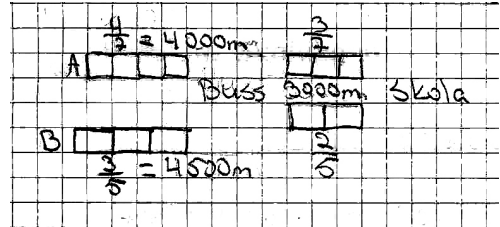 4/7 = 4000m 3/7
A Buss 3000m Skola
B 2/5
3/5 = 4500m